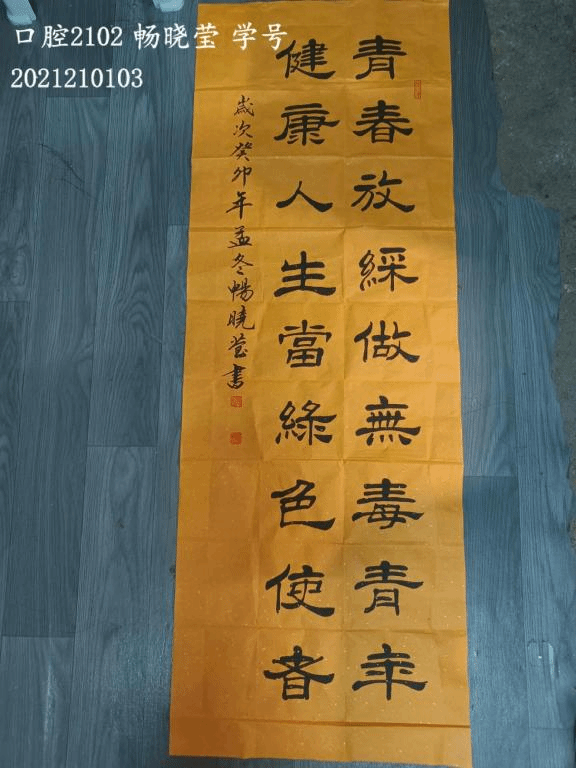 口腔2102 畅晓莹 学号
2021210103
青春放綵做無毒青年
健康人生當綠色使者
歲次癸卯年孟冬暢曉瑩書